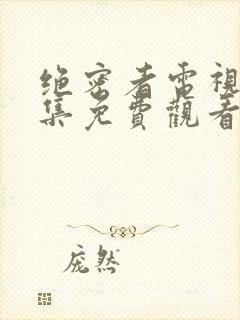 绝密者電視
集免費觀看
庞然